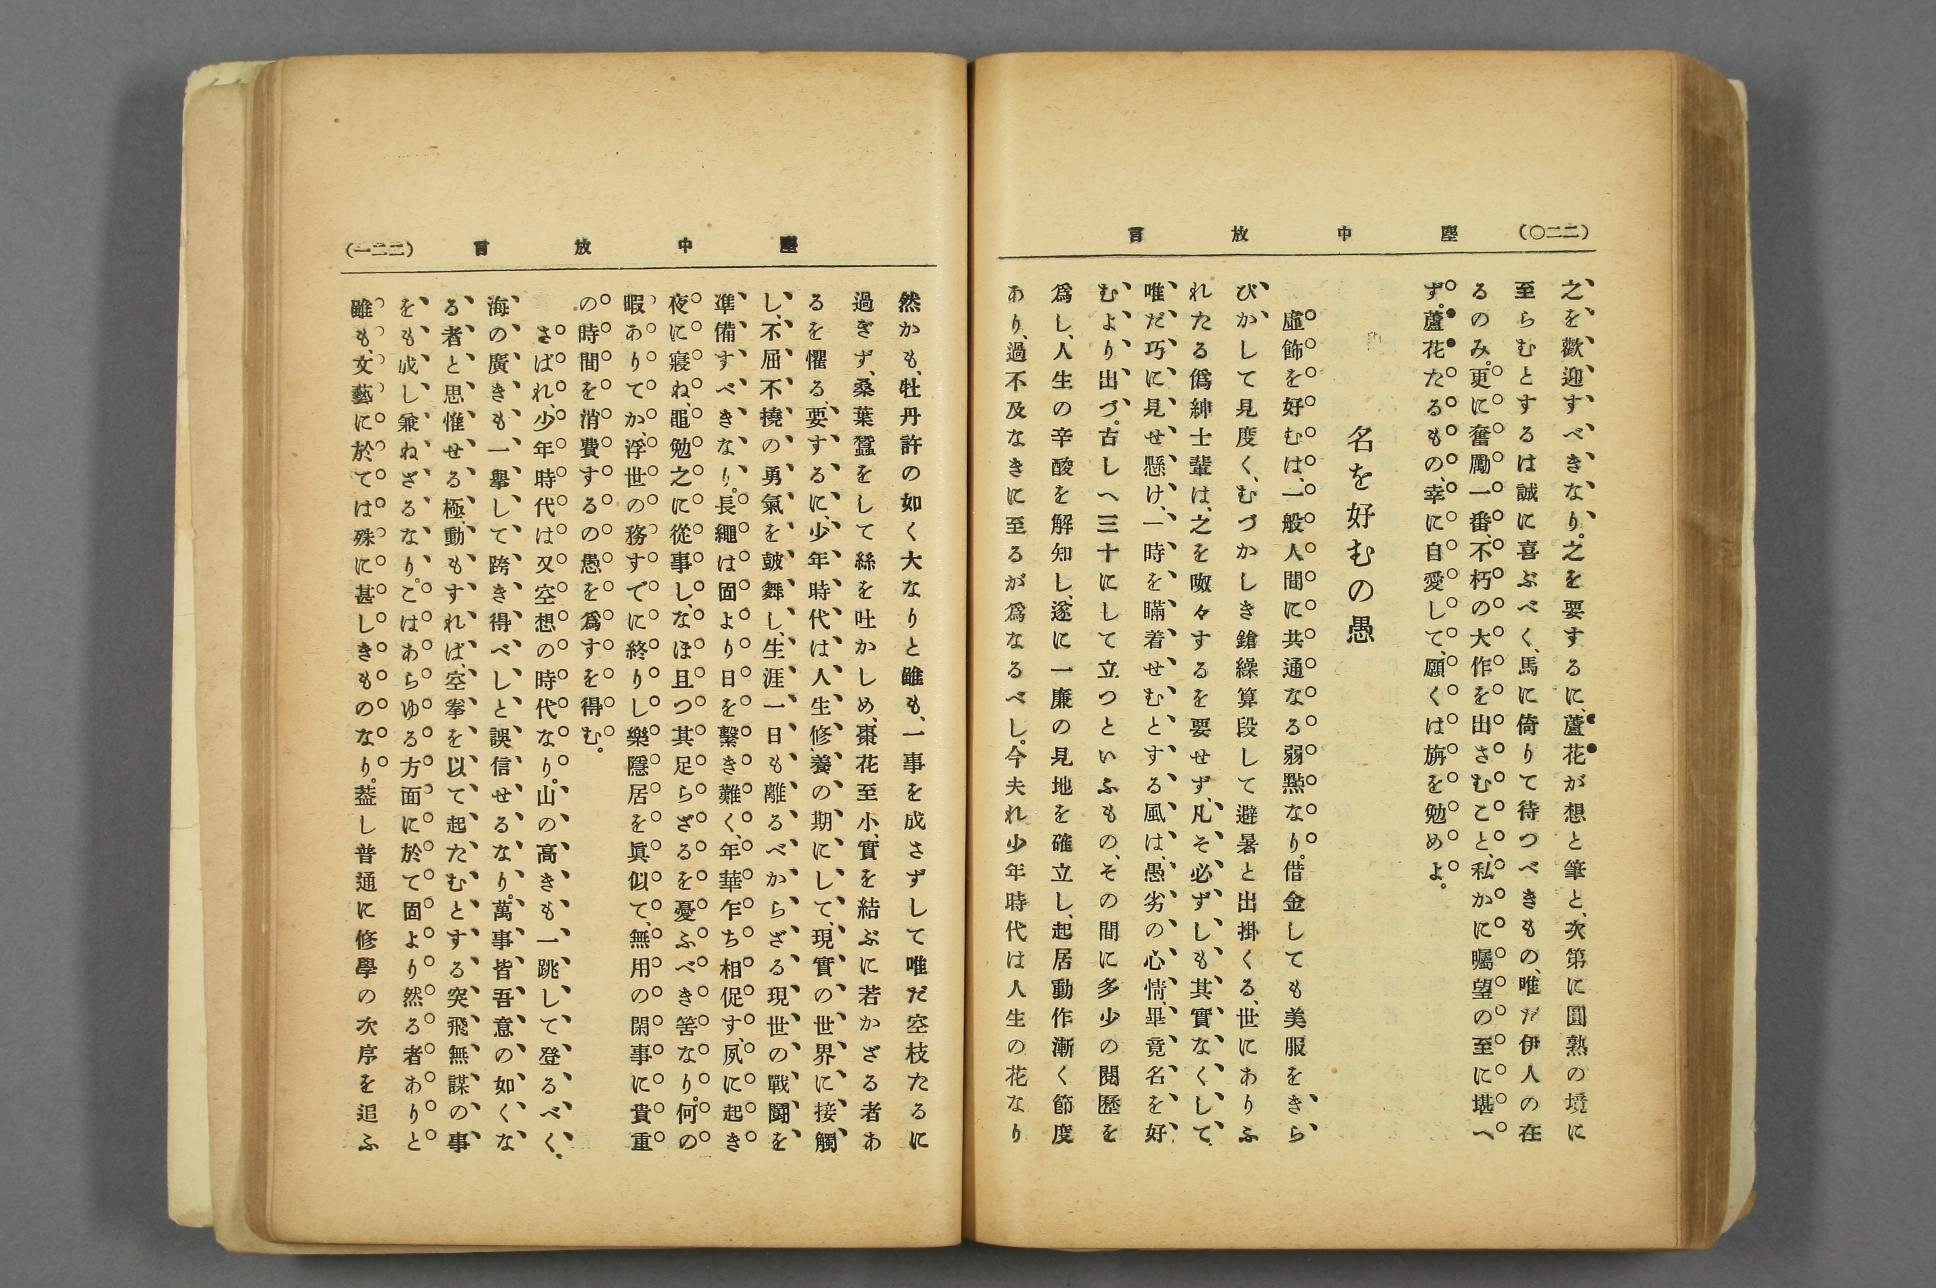 (二二〇) 塵中放言
之を歡迎すべきなり。之を要するに、蘆花が想と筆と、次第に圓熟の境に
至らむとするは誠に喜ぶべく、馬に倚りて待つべきもの、唯だ伊人の在
るのみ。更に奮勵一番、不朽の大作を出さむこと、私かに囑望の至に堪へ
ず。蘆花たるもの、幸に自愛して、願くは旃を勉めよ。
名を好むの愚
虛飾を好むは、一般人間に共通なる弱點なり。借金しても美服をきら
びかして見度く、むづかしき鎗繰算段して避暑と出掛くる、世にありふ
れたる僞紳士輩は、之を呶々するを要せず、凡そ必ずしも其實なくして、
唯だ巧に見せ懸け、一時を瞞着せむとする風は、愚劣の心情、畢竟名を好
むより出づ。古しへ三十にして立つといふもの、その間に多少の閱歷を
爲し、人生の辛酸を解知し、遂に一廉の見地を確立し、起居動作漸く節度
あり、過不及なきに至るが爲なるべし。今夫れ少年時代は人生の花なり
塵中放言 (二二一)
然かも、牡丹許の如く大なりと雖も、一事を成さずして唯だ空枝たるに
過ぎず、桑葉蠶をして絲を吐かしめ、棗花至小、實を結ぶに若かざる者あ
るを懼る、要するに、少年時代は人生修養の期にして、現實の世界に接觸
し、不屈不撓の勇氣を皷舞し、生涯一日も離るべからざる現世の戰鬪を
準備すべきなり。長繩は固より日を繫ぎ難く、年華乍ち相促す、夙に起き
夜に寢ね、黽勉之に從事し、なほ且つ其足らざるを憂ふべき筈なり。何の
暇ありてか、浮世の務すでに終りし樂隱居を眞似て、無用の閑事に貴重
の時間を消費するの愚を爲すを得む。
さばれ、少年時代は又空想の時代なり。山の高きも一跳して登るべく、
海の廣きも一擧して跨き得べしと誤信せるなり。萬事皆吾意の如くな
る者と思惟せる極、動もすれば、空拳を以て起たむとする突飛無謀の事
をも成し兼ねざるなり。こはあらゆる方面に於て固より然る者ありと
雖も、文藝に於ては殊に甚しきものなり。葢し普通に修學の次序を追ふ